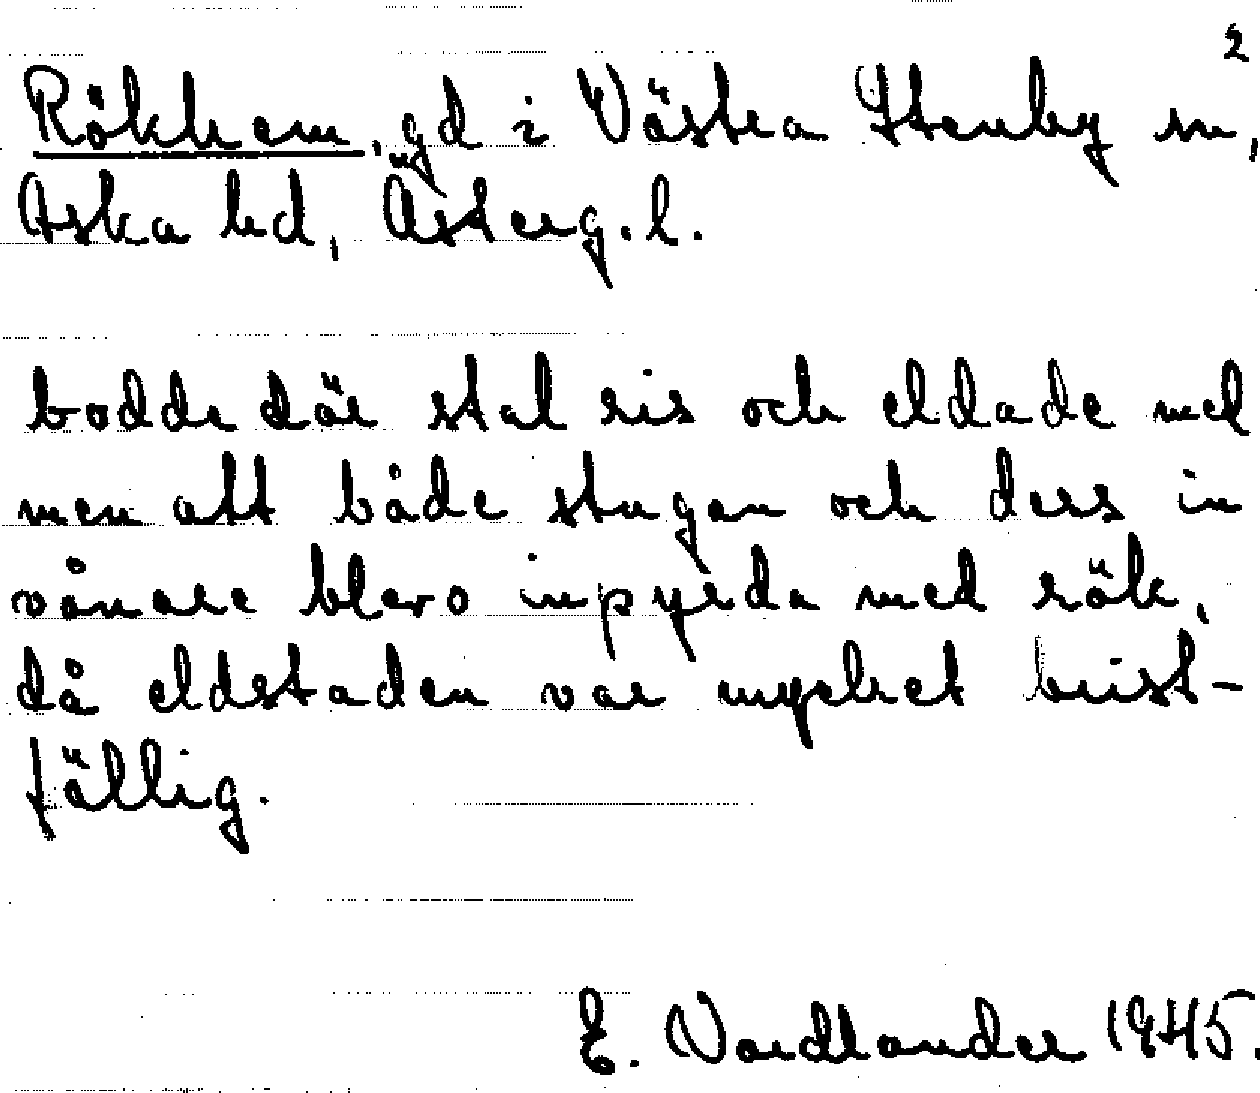 2
Rökhem, gd i Västra Stenby sn,
Aska hd, Österg. l.
bodde där stal ris och eldade med
men att både stugan och dess in
vånare blevo inpyrda med rök,
då eldstaden var mycket brist-
fällig.
E. Nordlander 1945.